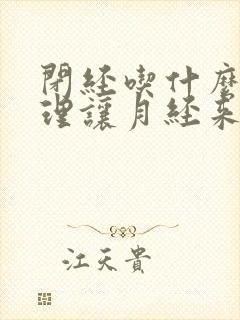 閉經喫什麽
理讓月經來
江天貴